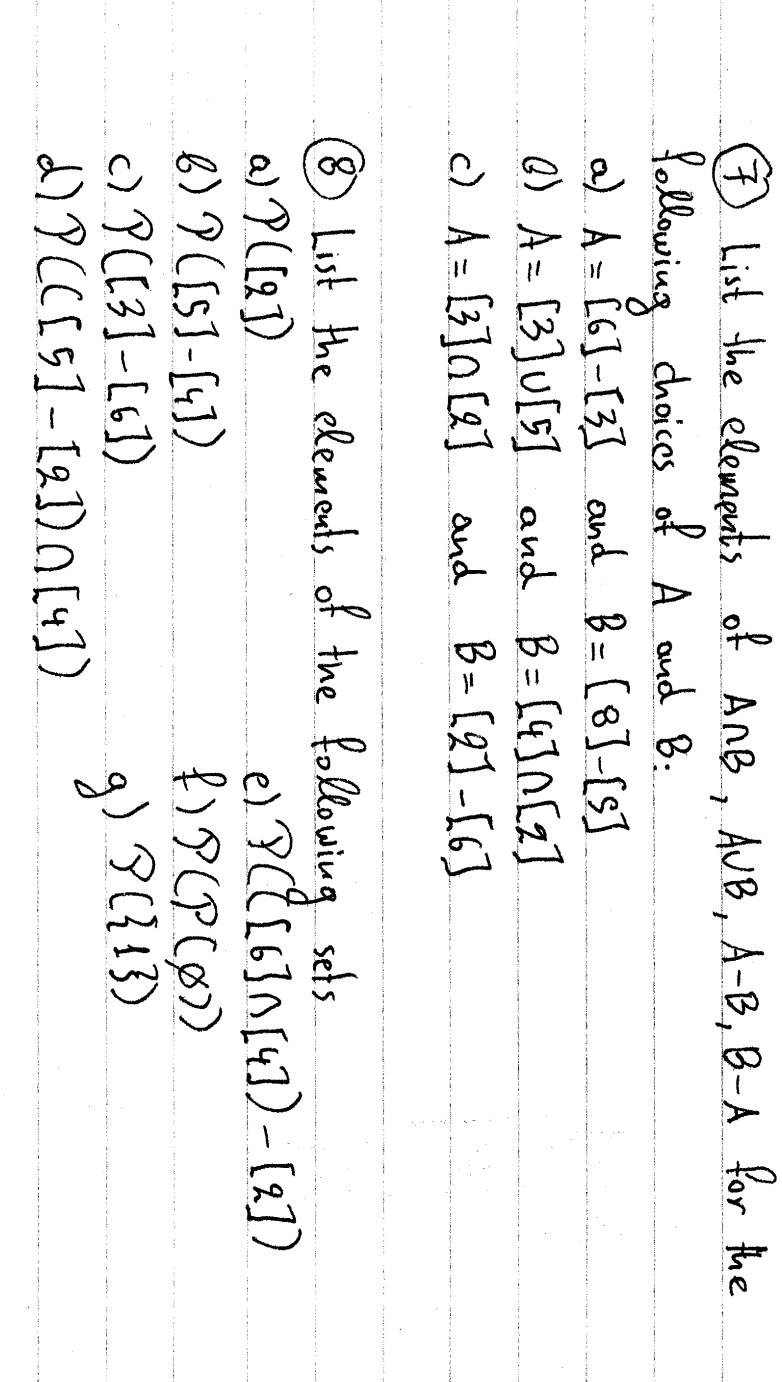 ⑦ List the elements of A∩B, A∪B, A-B, B-A for the
following choices of A and B:
a) A = [6]-[3] and B = [8]-[5]
b) A = [3]∪[5] and B = [4]∩[2]
c) A = [3]∩[2] and B = [2]-[6]
⑧ List the elements of the following sets
a) P([2])
b) P([5]-[4])
c) P([3]-[6])
d) P(([5]-[2])∩[4])
e) P(([6]∩[4])-[2])
f) P(P(∅))
g) P({1})